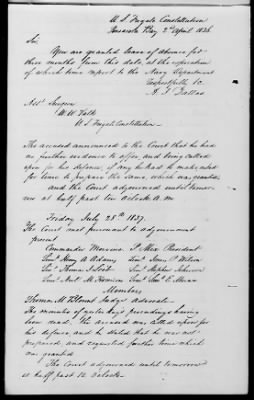 U S Frigate Constitution
Pensacola Bay 2d April 1836
Sir,
You are granted leave of absence for
three months from this date, at the expiration
of which time report to the Navy Department
Respectfully &c
A. J. Dallas
Asst Surgeon
U. S. Frigate Constitution
The accused announced to the Court that he had
no further evidence to offer, and being called
upon for his defence,
for time to prepare the same, which was granted
and the Court adjourned until tomor-
row at half past ten oclock A.M
Friday July 28th 1837.
The Court met pursuant to adjournment
present.
Commander Mervine P. Mix President
Lieut Henry A Adams Lieut John P. Wilson
Lieut Thomas J. Leib Lieut Stephen Johnson
Lieut E. Moran
Members
Thomas M Blount Judge Advocate
The minutes of yesterdays proceedings having
been read, the accused was called upon for
his defence, and he stated that he was not
prepared, and requested further time which
was granted
The Court adjourned until tomorrow
at half past 12 oclock